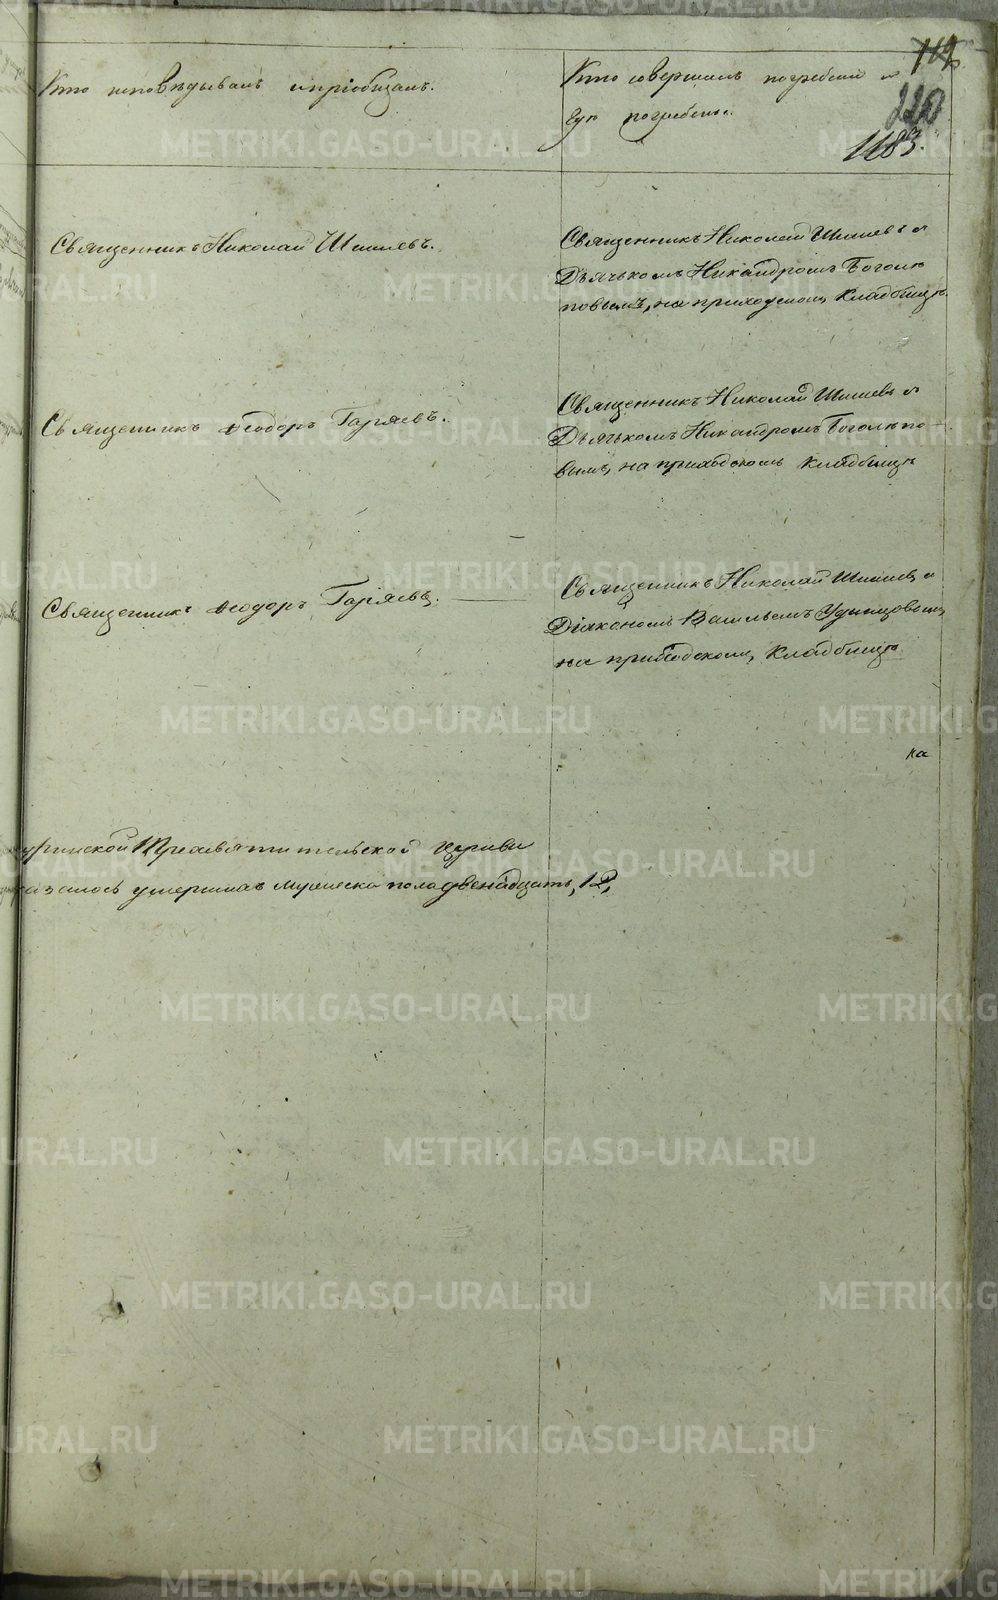 Кто исповѣдывалъ и пріобщалъ.
Кто совершалъ погребеніе и
гдѣ погребены.
119
220
1183.
Священникъ Николай Шишевъ.
Священникъ Николай Шишевъ и
Дьячькомъ Никандромъ Боголю
повымъ, на приходскомъ кладбищѣ.
Священникъ Ѳеодоръ Гаряевъ.
Священникъ Николай Шишевъ и
Дьячькомъ Никандромъ Боголюпо-
вымъ, на приходскомъ кладбищѣ
Священникъ Ѳеодоръ Гаряевъ.
Священникъ Николай Шишевъ и
Діакономъ Васильемъ Удинцовымъ
на приходскомъ кладбищѣ.
ка
Трехсвятительской церкви
умершихъ мужеска пола двенадцать, 12,
METRIKI.GASO-URAL.RU